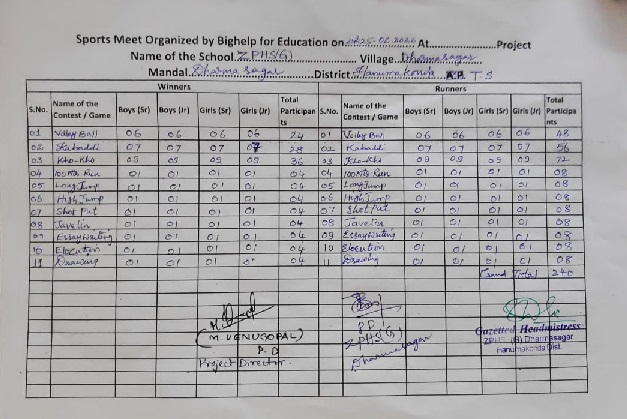 Sports Meet Organized by Bighelp for Education on 25.02.2020 At..................Project
Name of the School ZPHS(G) Village Dharmasagar
Mandal Dharmasagar District Hanumakonda A.P. T S
Winners Runners
S.No. Name of the Contest / Game Boys (Sr) Boys (Jr) Girls (Sr) Girls (Jr) Total Participants S.No. Name of the Contest / Game Boys (Sr) Boys (Jr) Girls (Sr) Girls (Jr) Total Participants
01 Volley Ball 06 06 06 06 24 01 Volley Ball 06 06 06 06 48
02 Kabaddi 07 07 07 07 28 02 Kabaddi 07 07 07 07 56
03 Kho-Kho 09 09 09 09 36 03 Kho-Kho 09 09 09 09 72
04 100Mts Run 01 01 01 01 04 04 100Mts Run 01 01 01 01 08
05 Long Jump 01 01 01 01 04 05 Long Jump 01 01 01 01 08
06 High Jump 01 01 01 01 04 06 High Jump 01 01 01 01 08
07 Shot Put 01 01 01 01 04 07 Shot Put 01 01 01 01 08
08 Javelin 01 01 01 01 04 08 Javelin 01 01 01 01 08
09 Essay Writing 01 01 01 01 04 09 Essay Writing 01 01 01 01 08
10 Elocution 01 01 01 01 04 10 Elocution 01 01 01 01 08
11 Drawing 01 01 01 01 04 11 Drawing 01 01 01 01 08
Grand Total 240
(M. VENUGOPAL)
P.D
Project Director
P.D
ZPHS(G)
Dharmasagar
Gazetted Headmistress
ZPHS (G) Dharmasagar
Hanumakonda Dist.